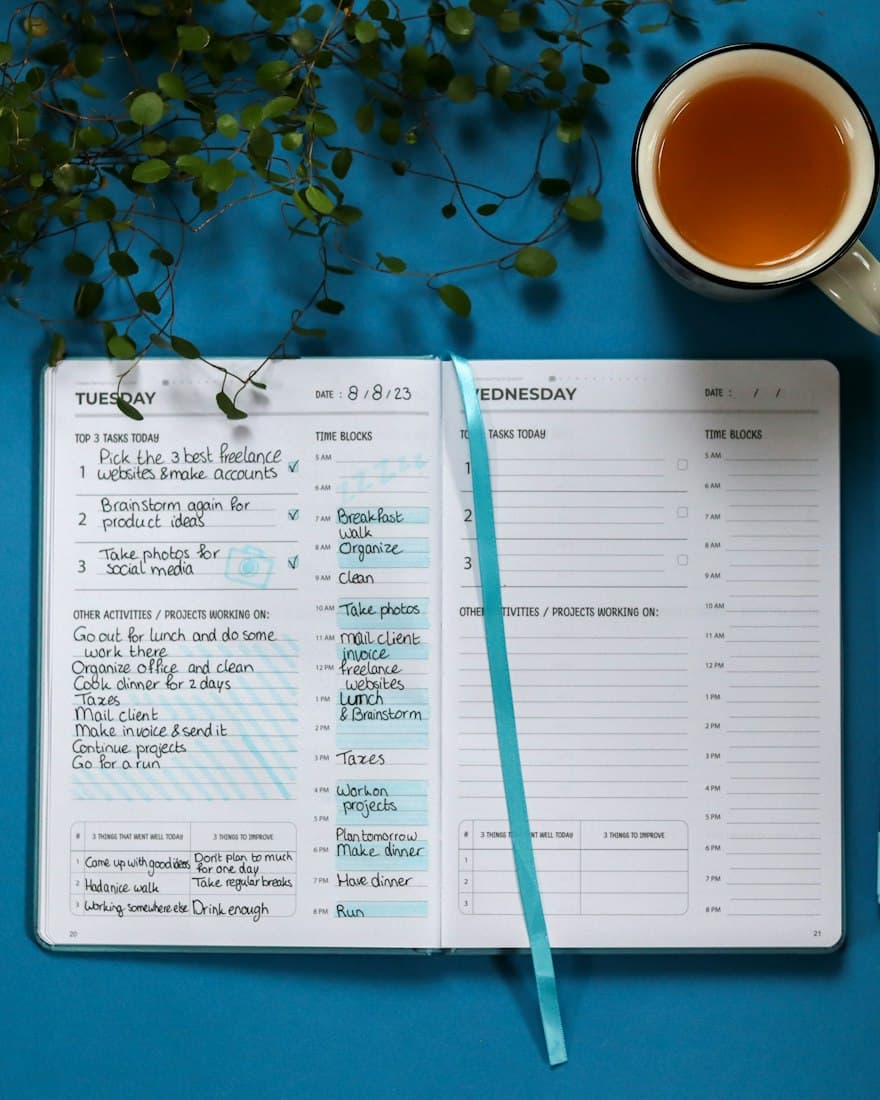 TUESDAY
DATE : 8 / 8 / 23
TOP 3 TASKS TODAY
1 Pick the 3 best freelance
websites & make accounts
2 Brainstorm again for
product ideas
3 Take photos for
social media
OTHER ACTIVITIES / PROJECTS WORKING ON:
Go out for lunch and do some
work there
Organize office and clean
Cook dinner for 2 days
Taxes
Mail client
Make invoice & send it
Continue projects
Go for a run
# 3 THINGS THAT WENT WELL TODAY 3 THINGS TO IMPROVE
1 Came up with good ideas Don't plan to much
for one day
2 Had a nice walk Take regular breaks
3 Working somewhere else Drink enough
20
TIME BLOCKS
5 AM
zzzzz
6 AM
7 AM Breakfast
walk
8 AM Organize
9 AM Clean
10 AM Take photos
11 AM Mail client
invoice
12 PM freelance
websites
1 PM Lunch
& Brainstorm
2 PM
3 PM Taxes
4 PM Work on
projects
5 PM
Plan tomorrow
6 PM Make dinner
7 PM Have dinner
8 PM Run
WEDNESDAY
DATE : / /
TASKS TODAY
1
2
3
OTHER ACTIVITIES / PROJECTS WORKING ON:
# 3 THINGS WENT WELL TODAY 3 THINGS TO IMPROVE
1
2
3
TIME BLOCKS
5 AM
6 AM
7 AM
8 AM
9 AM
10 AM
11 AM
12 PM
1 PM
2 PM
3 PM
4 PM
5 PM
6 PM
7 PM
8 PM
21